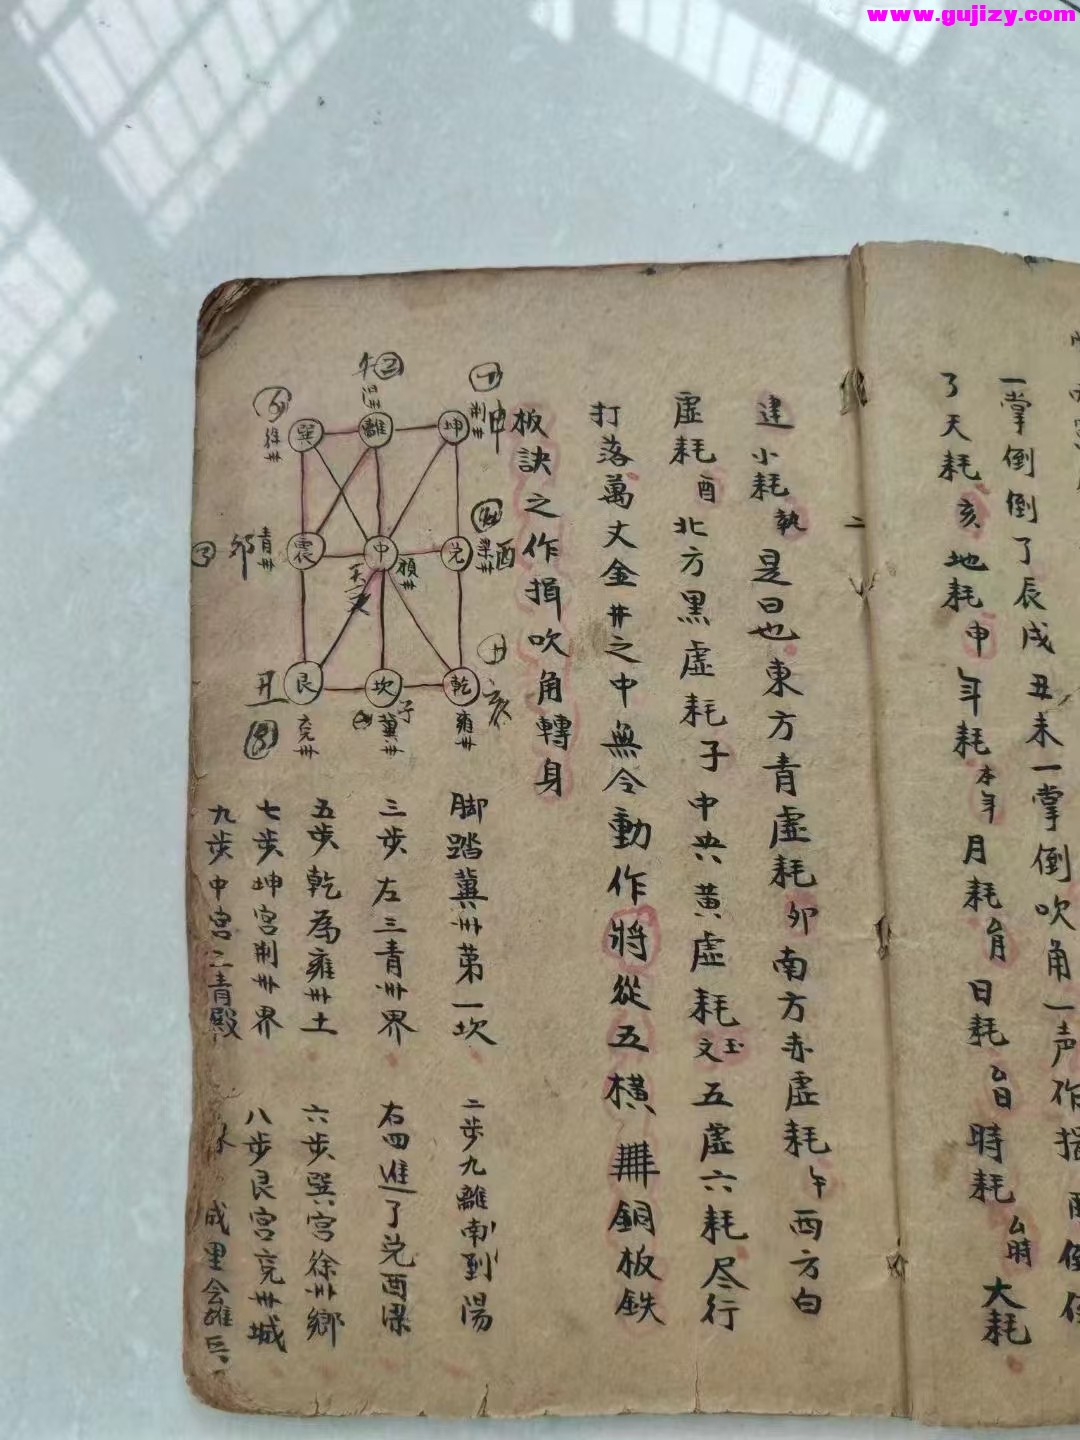 www.gujizy.com
一掌倒倒了辰戌丑未一掌倒吹角一声作揖
了天耗亥地耗申年耗本年月耗月日耗日時耗時大耗
建小耗執是日也東方青虛耗卯南方赤虛耗午西方白
虛耗酉北方黑虛耗子中央黄虛耗五虛六耗尽行
打落萬丈金井之中無令動作將從五橫銅板鉄
板訣之作揖吹角轉身
坤 申 荆卅
離 午
巽 徐卅
兑 酉 梁卅
中
震 卯 青卅
乾 亥 雍卅
坎 子 冀卅
艮 丑 兗卅
脚踏冀卅苐一坎 二步九離南到陽
三步左三青卅界 右四進了兑酉梁
五步乾為雍卅土 六步巽宮徐卅鄉
七步坤宮荆卅界 八步艮宮兗卅城
九步中宮三青殿